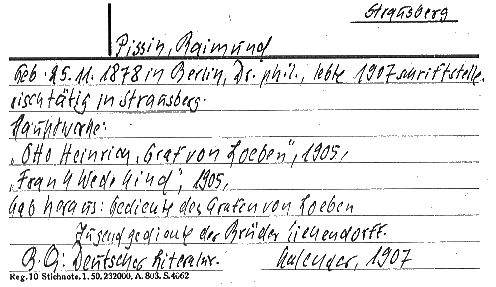 Strausberg
Pissin, Raimund
Geb. 25.11.1878 in Berlin, Dr. phil., lebte 1907 schriftstelle-
risch tätig in Strausberg.
Hauptwerke:
"Otto Heinrich, Graf von Loeben", 1905,
"Frank Wedekind", 1905,
Gab heraus: Gedichte des Grafen von Loeben
Jugendgedichte der Brüder Eichendorff.
B.Q: Deutscher Literatur. Kalender, 1907
Reg. 10 Stichnote. 1. 50. 232000. A. 803. S. 4662